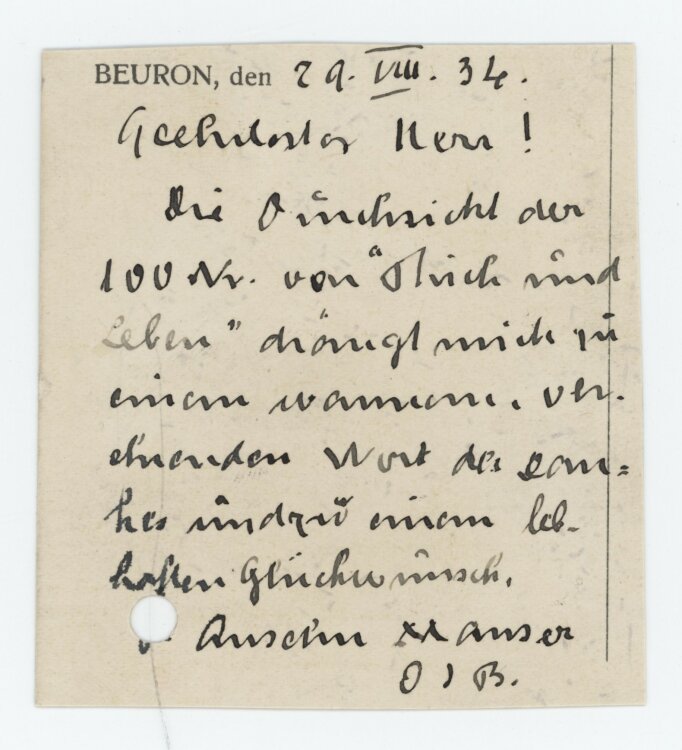 BEURON, den 29. VIII. 34.
Geehrtester Herr!
Die Durchsicht der
100 Nr. von "Buch und
Leben" drängt mich zu
einem warmen, ver-
ehrenden Wort des Dan=
kes und zu einem leb-
haften Glückwunsch.
P. Anselm Manser
OSB.